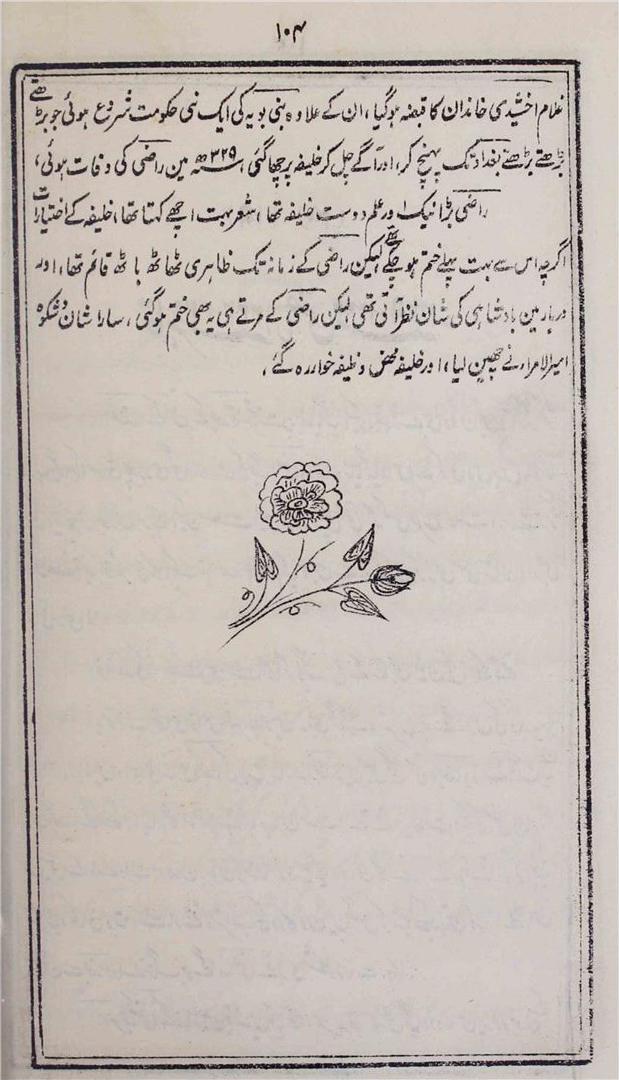 ۱۰۴
غلام اخشیدی خاندان کا قبضہ ہوگیا، ان کے علاوہ بنی بویہ کی ایک نئی حکومت شروع ہوئی جو بڑھتے
بڑھتے بڑھتے بغداد تک پہنچ کر، اور آگے چل کر خلیفہ پر چھا گئی، ۳۲۹ھ مین راضی کی وفات ہوئی،
راضی بڑا نیک اور علم دوست خلیفہ تھا، شعر بہت اچھے کہتا تھا، خلیفہ کے اختیارات
اگرچہ اس سے بہت پہلے ختم ہو چکے تھے لیکن راضی کے زمانہ تک ظاہری ٹھاٹھ باٹھ قائم تھا، اور
دربار مین بادشاہی کی شان نظر آتی تھی لیکن راضی کے مرتے ہی یہ بھی ختم ہوگئی، سارا شان و شکوہ
امیر الامراء نے چھین لیا، اور خلیفہ محض وظیفہ خوار رہ گئے،